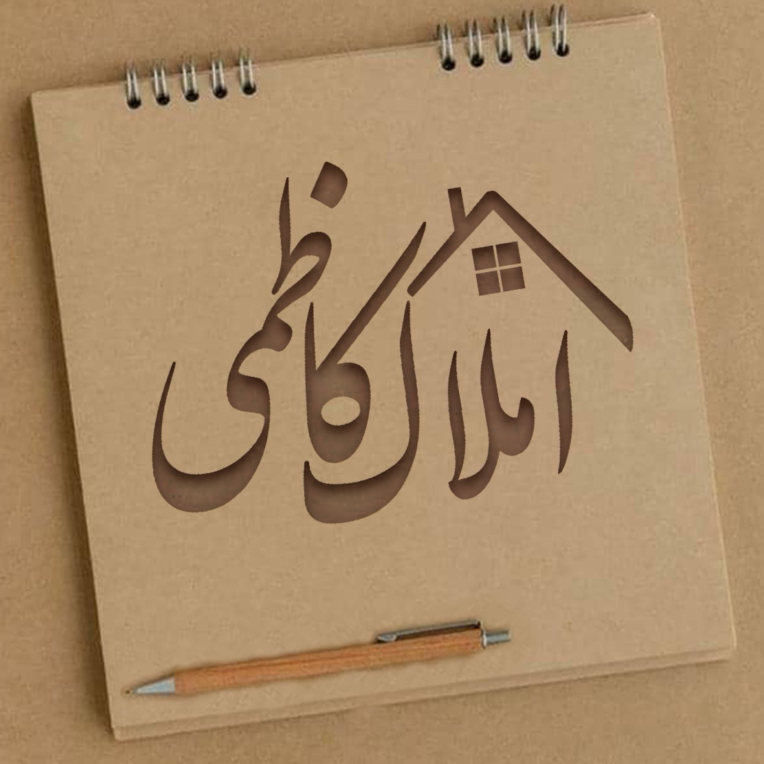 املاک کاظمی